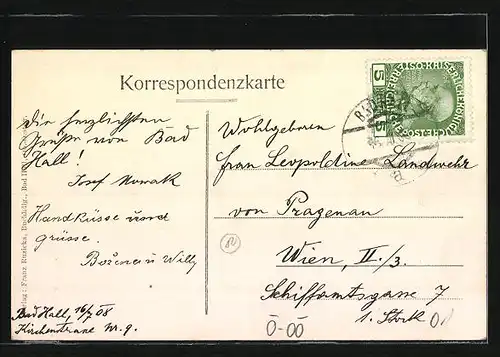 Korrespondenzkarte
die herzlichsten
Grüße von Bad
Hall!
Josef Nowak
Handküsse und
grüsse.
Božena u Willy
Bad Hall, 16/7 08
Kirchenstrasse No. 9.
Wohlgeboren
Frau Leopoldine Landwehr
von Pragenau
Wien, II./3.
Schiffamtsgasse 7
1. Stock
Verlag: Franz Ruzicka, Buchhdlg., Bad Hall
5 5
BAD
0-00